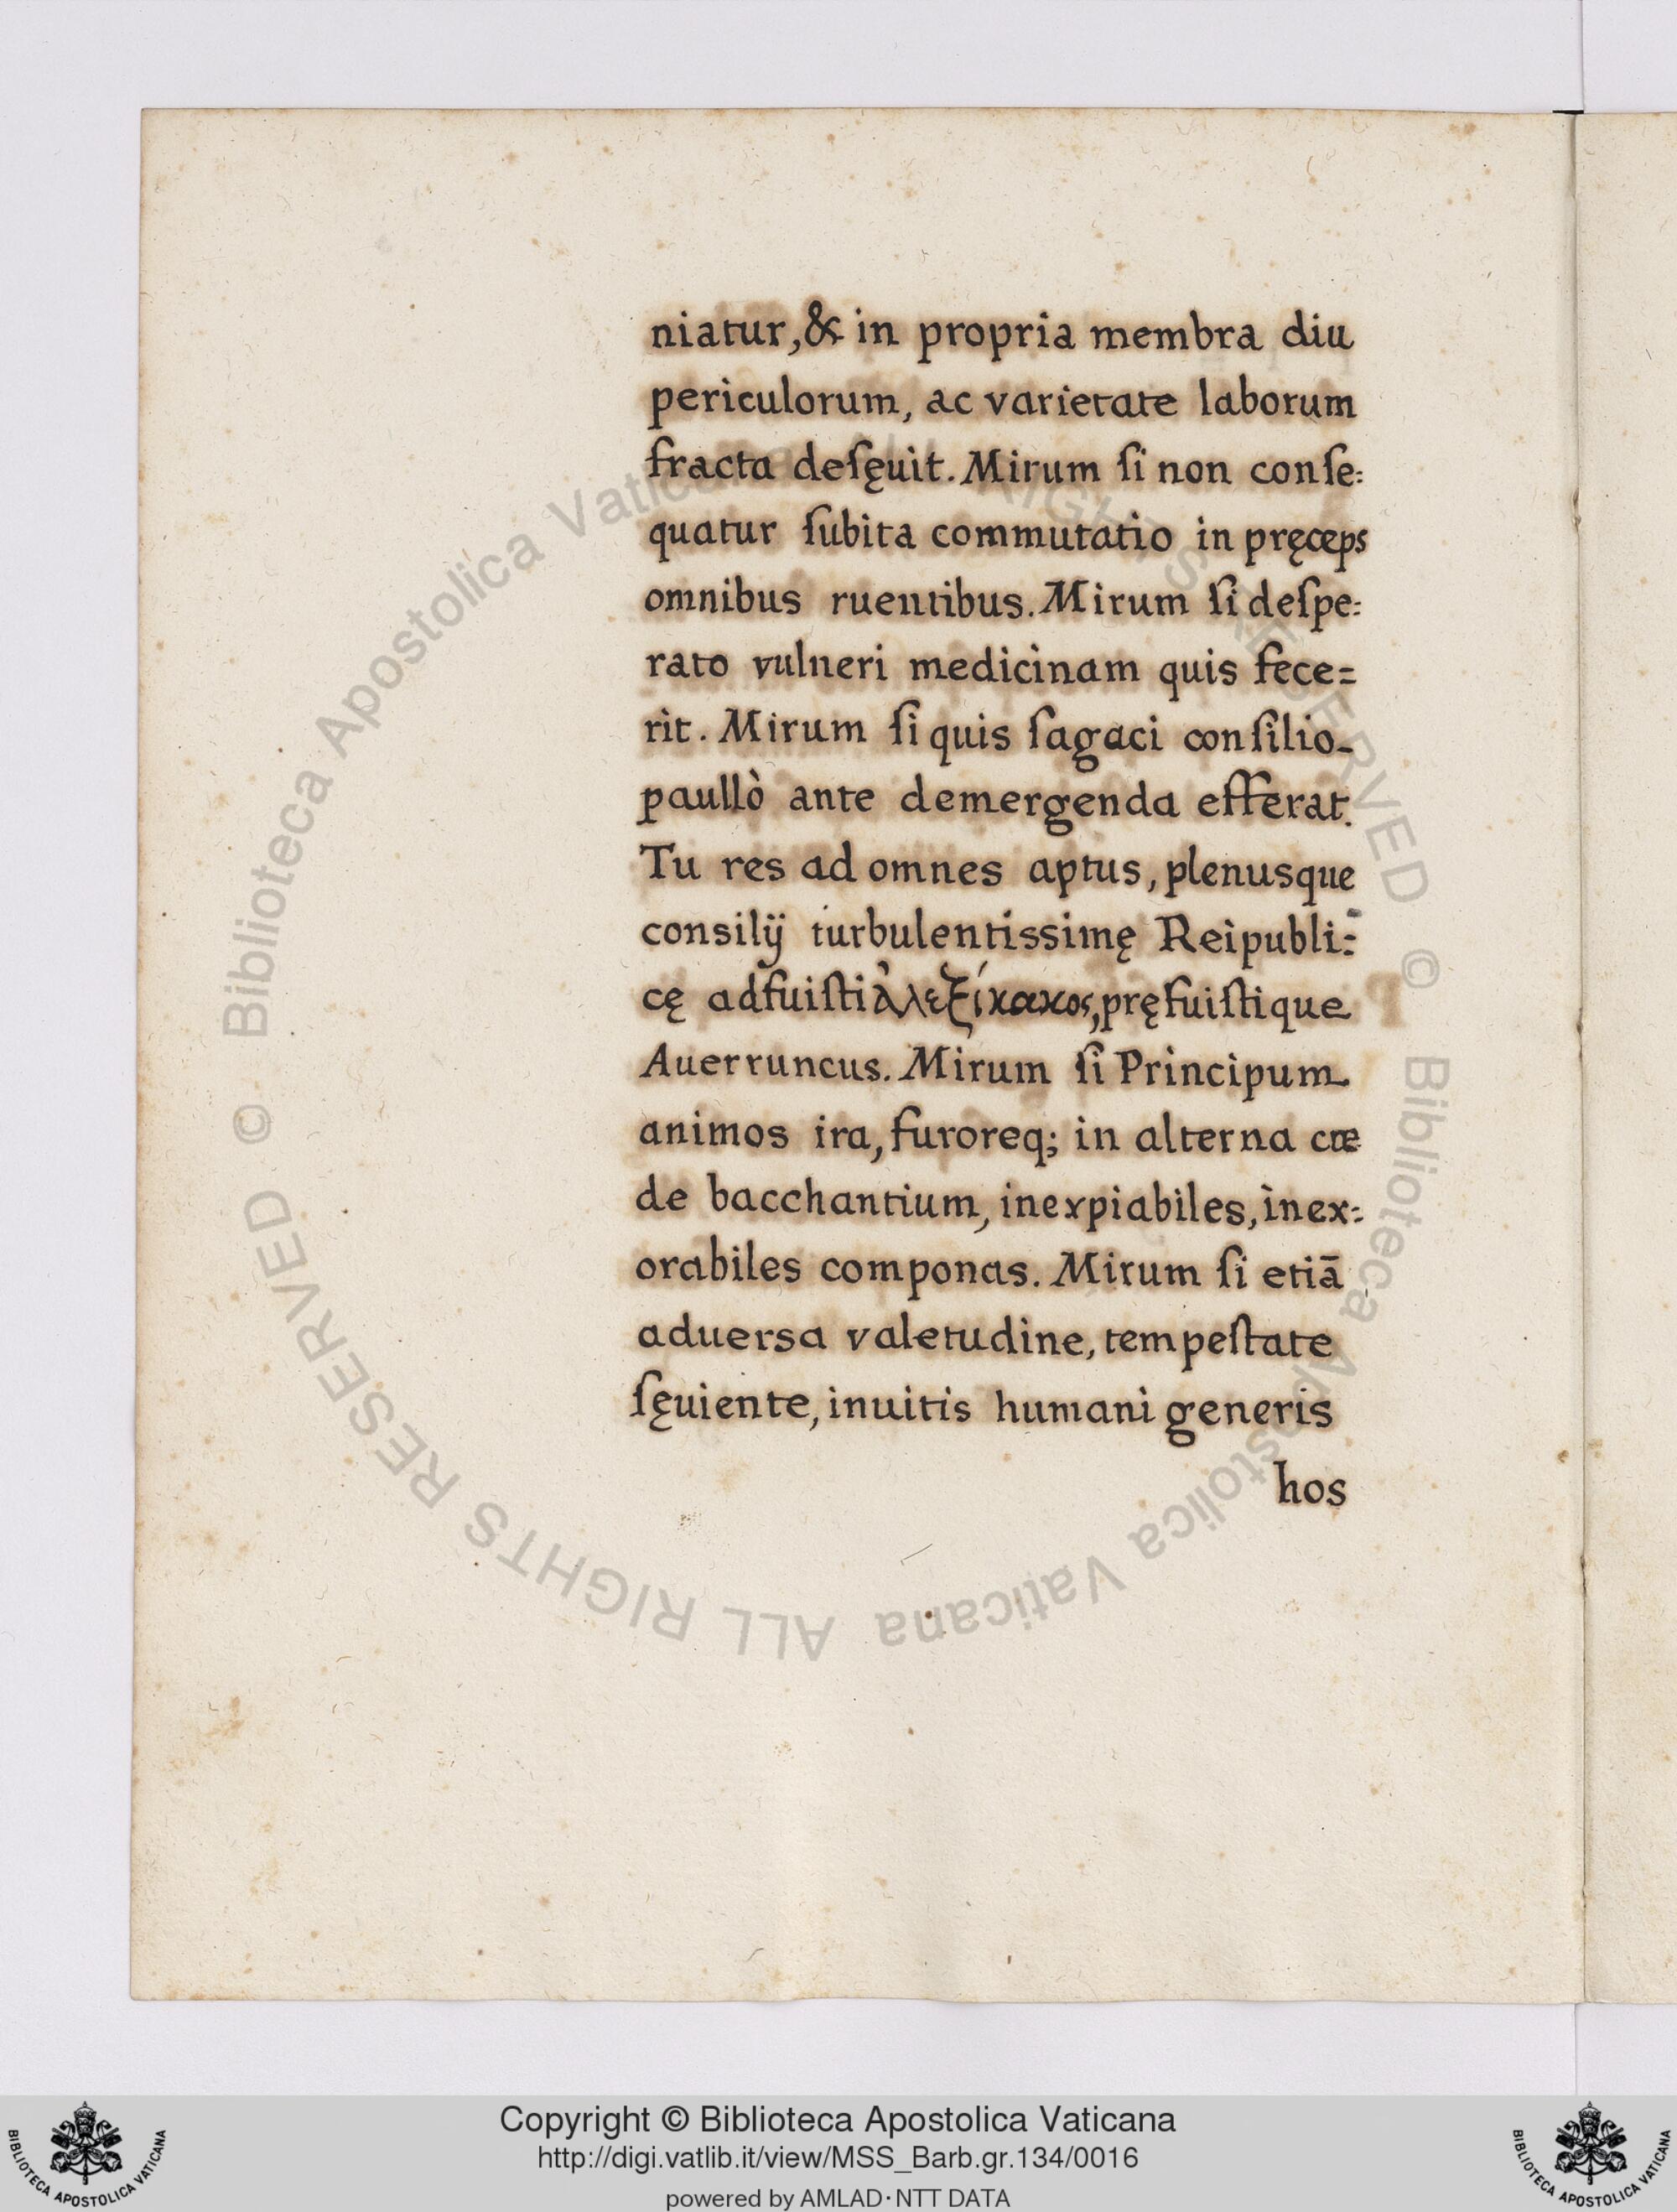 niatur, & in propria membra diu
periculorum, ac varietate laborum
fracta deſęuit. Mirum ſi non conſe=
quatur ſubita commutatio in pręceps
omnibus ruentibus. Mirum ſi deſpe=
rato vulneri medicinam quis fece=
rit. Mirum ſi quis ſagaci conſilio
paullò ante demergenda efferat.
Tu res ad omnes aptus, plenusque
consilij turbulentissimę Reipubli=
cę adfuiſti ἀλεξίκακος, pręfuiſtique
Auerruncus. Mirum ſi Principum
animos ira, furoreq; in alterna cæ
de bacchantium, inexpiabiles, inex=
orabiles componas. Mirum ſi etiā
aduersa valetudine, tempeſtate
ſęuiente, inuitis humani generis
hos
© Biblioteca Apostolica Vaticana ALL RIGHTS RESERVED © Biblioteca Apostolica Vaticana ALL RIGHTS RESERVED
BIBLIOTECA APOSTOLICA VATICANA
Copyright © Biblioteca Apostolica Vaticana
http://digi.vatlib.it/view/MSS_Barb.gr.134/0016
powered by AMLAD·NTT DATA
BIBLIOTECA APOSTOLICA VATICANA